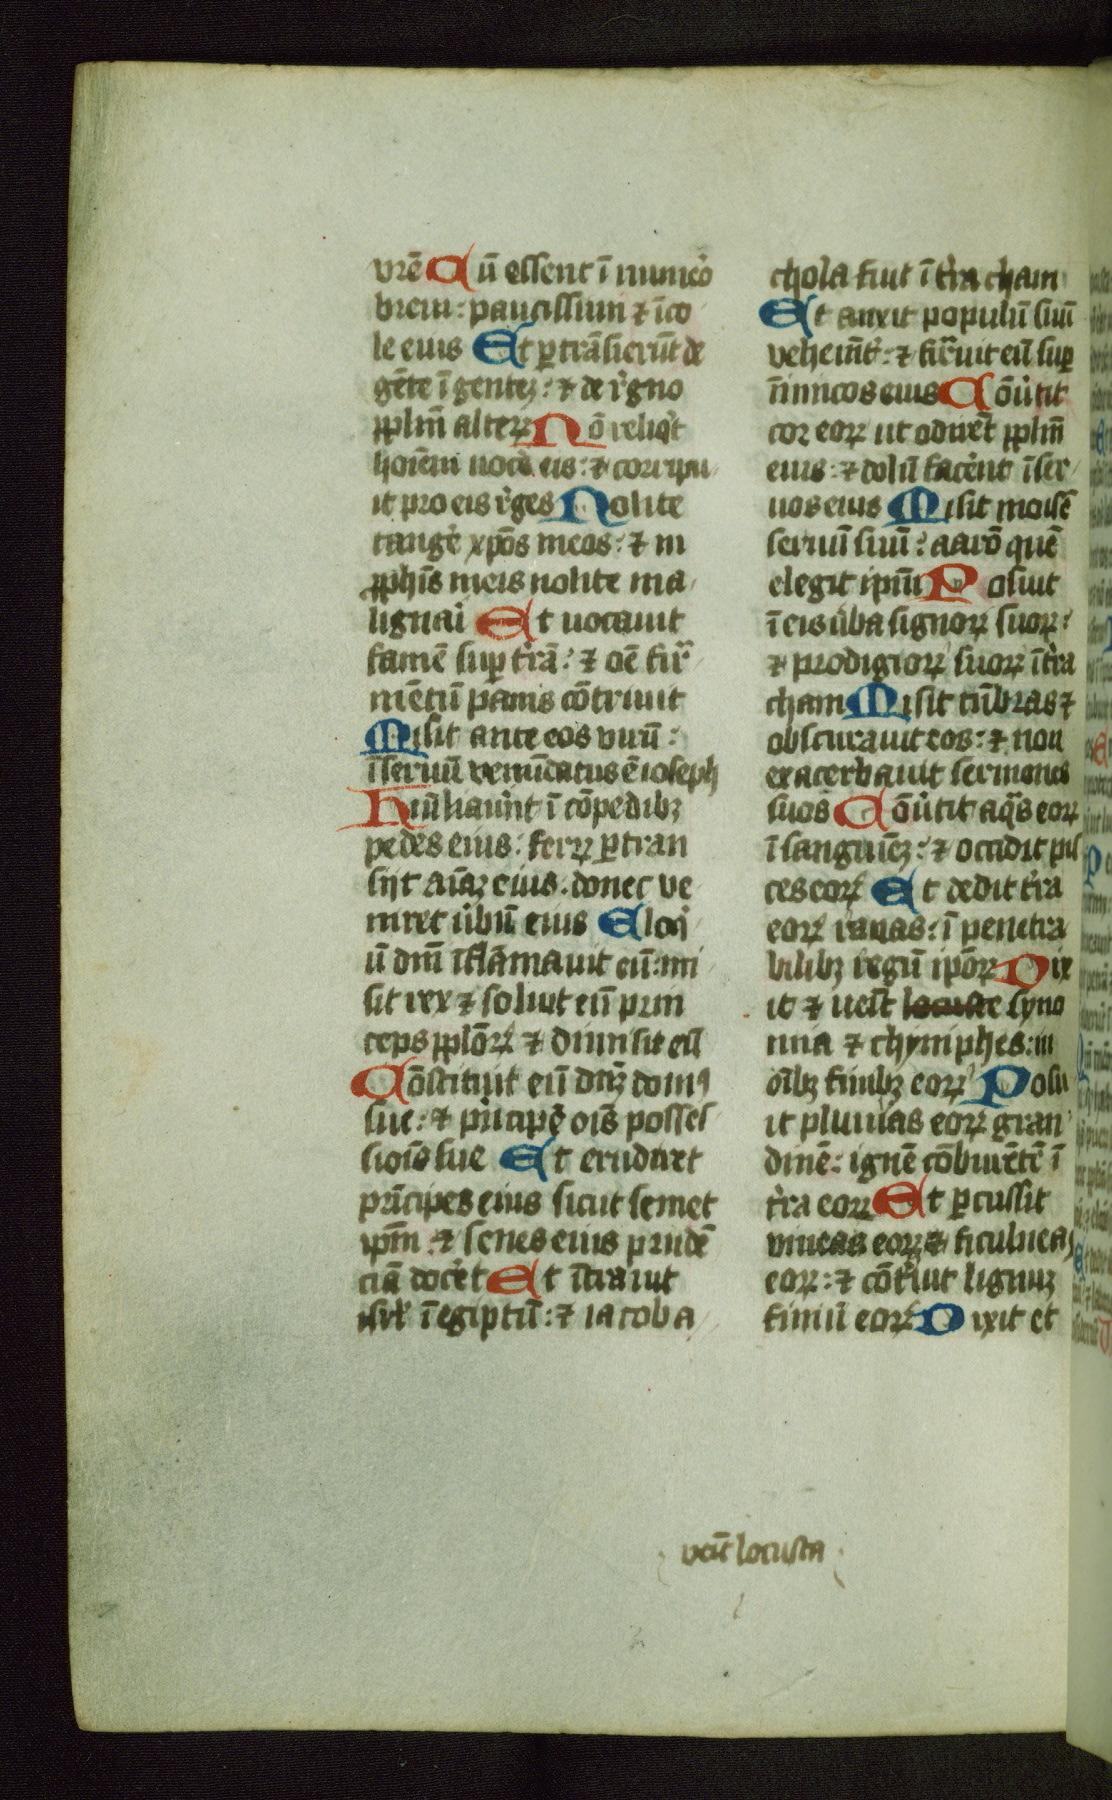 vr̄e Cū essent ī numeͦo
breui: paucissimi ⁊ īco
le eius Et ꝑtrāsierūt de
gēte ī gentē: ⁊ de rͥgno
ꝓplm̄ alteꝝ Nō reliqͥt
hoiēm nocēͤ eis: ⁊ corripu
it pro eis rͥges Nolite
tangēͤ xp̄os meos: ⁊ in
ꝓphīs meis nolite ma
lignaͥ Et uocauit
famē suꝑ tr̄ā: ⁊ oē fir
mētū panis cōtriuit
Misit ante eos virū:
ī seruū venūdatus ē ioseph
Hūiliaūͤnt ī cōpedibꝫ
pedes eius: ferꝝ ꝑtran
sijt aīaꝫ eius. donec ve
niret ūͤbū eius Eloqͥ
ū dnī īflāmauit eū: mi
sit rex ⁊ soluit eū prin
ceps ꝓploꝝ ⁊ dimisit eū
Cōstituit eū dn̄ꝫ domꝰ
sue: ⁊ pͥncipē oīs posses
siōis sue Et erudiret
pͥncipes eius sicut semet
ipm̄: ⁊ senes eius prudē
ciā docēͤt Et ītrauit
isrl̄ ī egiptū: ⁊ iacob a
chola fuit ī tr̄a cham
Et auxit populū suū
veheīnͭ: ⁊ firͥuit eū suꝑ
īnimicos eius Cōūͤtit
cor eoꝝ ut odirēt ꝓplm̄
eius: ⁊ dolū facēͤnt ī ser
uos eius Misit moisē
seruū suū: aarō quē
elegit ipm̄ Posuit
ī eis ūͤba signoꝝ suoꝝ:
⁊ prodigioꝝ suoꝝ ī tr̄a
cham Misit tn̄bras ⁊
obscurauit eos: ⁊ non
exacerbauit sermones
suos Cōūͤtit aqͣs eoꝝ
ī sanguiēꝫ: ⁊ occidit pis
ces eoꝝ Et dedit tr̄a
eoꝝ ranas: ī penetra
bilibꝫ regū ipōꝝ Dix
it ⁊ ueīt locuste syno
mia ⁊ chyniphes: in
oībꝫ finibꝫ eoꝝ Posu
it pluuias eoꝝ gran
dinē: ignē cōburētē ī
tr̄a eoꝝ Et ꝑcussit
vineas eoꝝ ⁊ ficulneas
eoꝝ: ⁊ cōtͥuit lignuꝫ
finiū eoꝝ Dixit et
veīt locusta